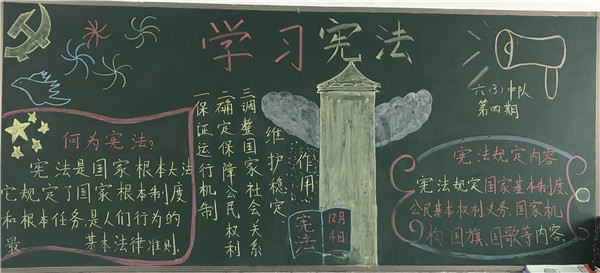 学习宪法
六(3)中队
第四期
何为宪法?
宪法是国家根本大法
它规定了国家根本制度
和根本任务,是人们行为的
最 基本法律准则.
作用:
一保证运行机制
二确定保障公民权利
三调整国家社会关系
维护稳定
宪法
12月
4日
宪法规定内容
宪法规定国家基本制度、
公民基本权利义务、国家机
构、国旗、国歌等内容.